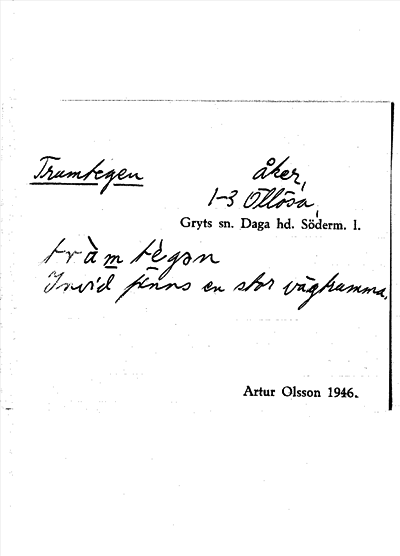 Trumtegen
åker,
1-3 Ottösa,
Gryts sn. Daga hd. Söderm. l.
tràm tègən
Invid finns en stor vägtrumma.
Artur Olsson 1946.